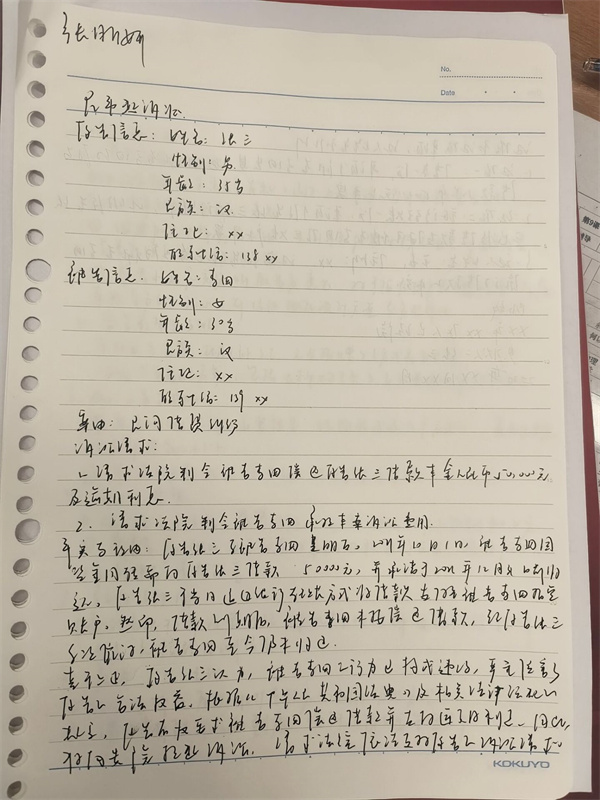 张
No.
Date
民事起诉状
原告信息：姓名：张三
性别：男
年龄：35岁
民族：汉
住址：xx
联系电话：138 xx
被告信息：姓名：李四
性别：女
年龄：30岁
民族：汉
住址：xx
联系电话：139 xx
案由：民间借贷纠纷
诉讼请求：
1、请求法院判令被告李四偿还原告张三借款本金人民币50,000元
及逾期利息.
2、请求法院判令被告李四承担本案诉讼费用.
事实与理由：原告张三与被告李四是朋友。年10月1日，被告李四因
资金周转需向原告张三借款50000元，并承诺于年12月日前归
还。原告张三于当日通过银行转账方式将借款支付给被告李四指定
账户。然而，借款到期后，被告李四未按偿还借款，经原告张三
多次催讨，被告李四至今仍未归还.
综上所述，原告张三认为，被告李四的行为已构成违约，严重侵害了
原告的合法权益。根据《中华人民共和国民法典》及相关法律法规的
规定，原告有权要求被告李四偿还借款并支付逾期利息。因此，
向法院提起诉讼，请求法院依法支持原告的诉讼请求.
KOKUYO